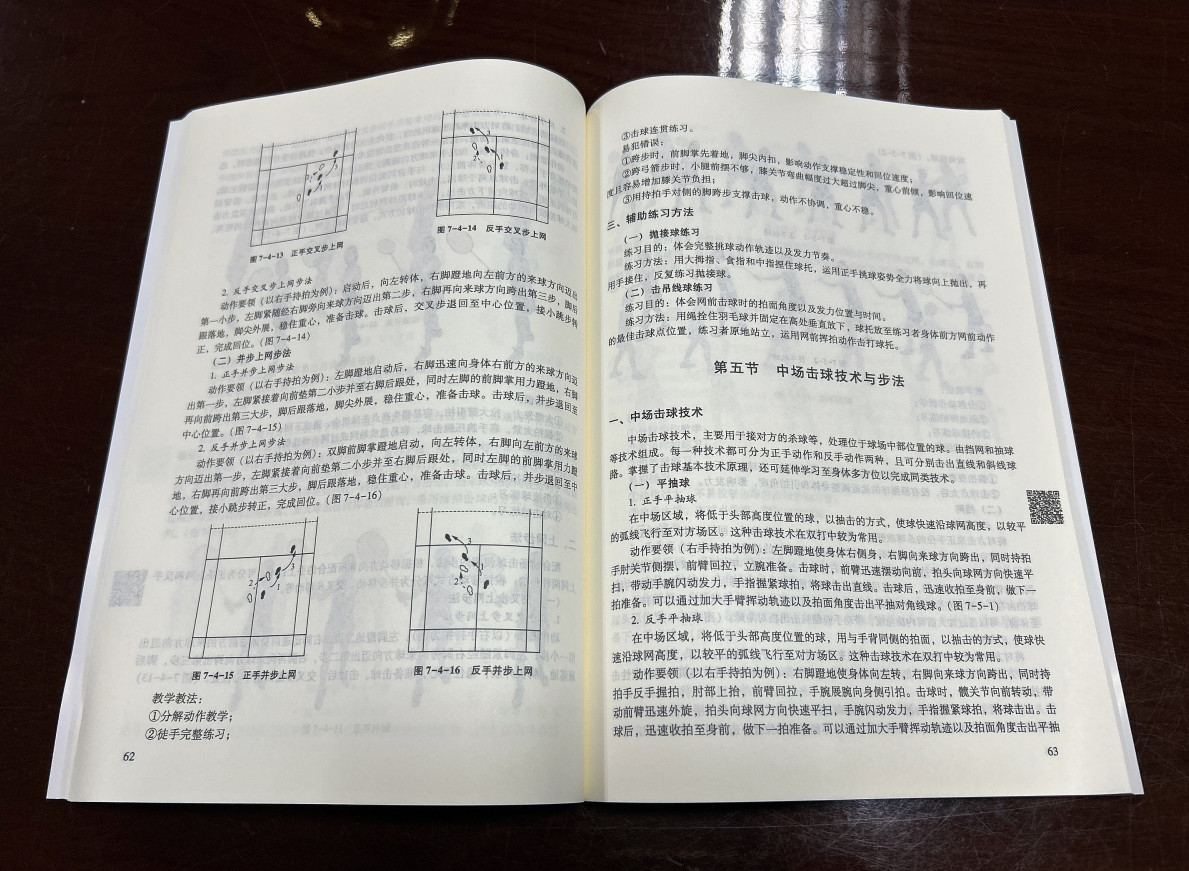 图 7-4-13 正手交叉步上网
图 7-4-14 反手交叉步上网
2. 反手交叉步上网步法
动作要领（以右手持拍为例）：启动后，向左转体，右脚蹬地向左前方的来球方向迈出
第一小步，左脚紧随经右脚旁向来球方向迈出第二步，右脚再向来球方向跨出第三步，脚后
跟落地，脚尖外展，稳住重心，准备击球。击球后，交叉步退回至中心位置，接小跳步转
正，完成回位。（图 7-4-14）
（二）并步上网步法
1. 正手并步上网步法
动作要领（以右手持拍为例）：左脚蹬地启动后，右脚迅速向身体右前方的来球方向迈
出第一步，左脚紧接着向前垫第二小步并至右脚后跟处，同时左脚的前脚掌用力蹬地，右脚
再向前跨出第三大步，脚后跟落地，脚尖外展，稳住重心，准备击球。击球后，并步退回至
中心位置。（图 7-4-15）
2. 反手并步上网步法
动作要领（以右手持拍为例）：双脚前脚掌蹬地启动，向左转体，右脚向左前方的来球
方向迈出第一步，左脚紧接着向前垫第二小步并至右脚后跟处，同时左脚的前脚掌用力蹬
地，右脚再向前跨出第三大步，脚后跟落地，稳住重心，准备击球。击球后，并步退回至中
心位置，接小跳步转正，完成回位。（图 7-4-16）
图 7-4-15 正手并步上网
图 7-4-16 反手并步上网
教学教法：
①分解动作教学；
②徒手完整练习；
62
③击球连贯练习。
易犯错误：
①跨步时，前脚掌先着地，脚尖内扣，影响动作支撑稳定性和回位速度；
②跨弓箭步时，小腿前摆不够，膝关节弯曲幅度过大超过脚尖，重心前倾，影响回位速
度且容易增加膝关节负担；
③用持拍手对侧的脚跨步支撑击球，动作不协调，重心不稳。
三、辅助练习方法
（一）抛接球练习
练习目的：体会完整挑球动作轨迹以及发力节奏。
练习方法：用大拇指、食指和中指捏住球托，运用正手挑球姿势全力将球向上抛出，再
用手接住，反复练习抛接球。
（二）击吊线球练习
练习目的：体会网前击球时的拍面角度以及发力位置与时间。
练习方法：用绳拴住羽毛球并固定在高处垂直放下，球托放至练习者身体前方网前动作
的最佳击球点位置，练习者原地站立，运用网前挥拍动作击打球托。
第五节 中场击球技术与步法
一、中场击球技术
中场击球技术，主要用于接对方的杀球等，处理位于球场中部位置的球。由挡网和抽球
等技术组成。每一种技术都可分为正手动作和反手动作两种，且可分别击出直线和斜线球
路。掌握了击球基本技术原理，还可延伸学习至身体多方位以完成同类技术。
（一）平抽球
1. 正手平抽球
在中场区域，将低于头部高度位置的球，以抽击的方式，使球快速沿球网高度，以较平
的弧线飞行至对方场区。这种击球技术在双打中较为常用。
动作要领（右手持拍为例）：左脚蹬地使身体右侧身，右脚向来球方向跨出，同时持拍
手肘关节侧摆，前臂回拉，立腕准备。击球时，前臂迅速摆动向前，拍头向球网方向快速平
扫，带动手腕闪动发力，手指握紧球拍，将球击出直线。击球后，迅速收拍至身前，做下一
拍准备。可以通过加大手臂挥动轨迹以及拍面角度击出平抽对角线球。（图 7-5-1）
2. 反手平抽球
在中场区域，将低于头部高度位置的球，用与手背同侧的拍面，以抽击的方式，使球快
速沿球网高度，以较平的弧线飞行至对方场区。这种击球技术在双打中较为常用。
动作要领（以右手持拍为例）：右脚蹬地使身体向左转，右脚向来球方向跨出，同时持
拍手反手握拍，肘部上抬，前臂回拉，手腕展腕向身侧引拍。击球时，髋关节向前转动，带
动前臂迅速外旋，拍头向球网方向快速平扫，手腕闪动发力，手指握紧球拍，将球击出。击
球后，迅速收拍至身前，做下一拍准备。可以通过加大手臂挥动轨迹以及拍面角度击出平抽
63